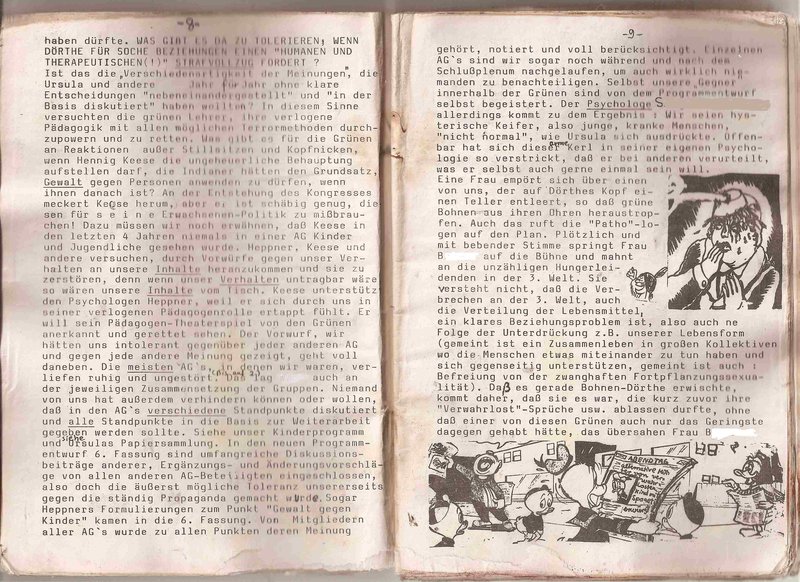 -8-
haben dürfte. WAS GIBT ES DA ZU TOLERIEREN, WENN
DÖRTHE FÜR SOCHE BEZIEHUNGEN EINEN "HUMANEN UND
THERAPEUTISCHEN(!)" STRAFVOLLZUG FORDERT ?
Ist das die "Verschiedenartigkeit der Meinungen", die
Ursula und andere Jahr für Jahr ohne klare
Entscheidungen "nebeneinandergestellt" und "in der
Basis diskutiert" haben wollten? In diesem Sinne
versuchten die grünen Lehrer, ihre verlogene
Pädagogik mit allen möglichen Terrormethoden durch-
zupowern und zu retten. Was gibt es für die Grünen
an Reaktionen außer Stillsitzen und Kopfnicken,
wenn Hennig Keese die ungeheuerliche Behauptung
aufstellen darf, die Indianer hätten den Grundsatz,
Gewalt gegen Personen anwenden zu dürfen, wenn
ihnen danach ist? An der Entstehung des Kongresses
meckert Keese herum, aber er ist schäbig genug, die
sen für s e i n e Erwachsenen-Politik zu mißbrau-
chen! Dazu müssen wir noch erwähnen, daß Keese in
den letzten 4 Jahren niemals in einer AG Kinder
und Jugendliche gesehen wurde. Heppner, Keese und
andere versuchen, durch Vorwürfe gegen unser Ver-
halten an unsere Inhalte heranzukommen und sie zu
zerstören, denn wenn unser Verhalten untragbar wäre
so wären unsere Inhalte vom Tisch. Keese unterstütz
den Psychologen Heppner, weil er sich durch uns in
seiner verlogenen Pädagogenrolle ertappt fühlt. Er
will sein Pädagogen-Theaterspiel von den Grünen
anerkannt und gerettet sehen. Der Vorwurf, wir
hätten uns intolerant gegenüber jeder anderen AG
und gegen jede andere Meinung gezeigt, geht voll
daneben. Die meisten AG`s, in denen wir waren, ver-
liefen ruhig und ungestört. Das lag auch an
der jeweiligen Zusammensetzung der Gruppen. Niemand
von uns hat außerdem verhindern können oder wollen,
daß in den AG`s verschiedene Standpunkte diskutiert
und alle Standpunkte in die Basis zur Weiterarbeit
gegeben werden sollte. Siehe unser Kinderprogramm
und siehe Ursulas Papiersammlung. In den neuen Programm-
entwurf 6. Fassung sind umfangliche Diskussions-
beiträge anderer, Ergänzungs- und Änderungsvorschlä-
ge von allen anderen AG-Beteiligten eingeschlossen,
also doch die äußerst mögliche Toleranz unsererseits
gegen die ständig Propaganda gemacht wurde. Sogar
Heppners Formulierungen zum Punkt "Gewalt gegen
Kinder" kamen in die 6. Fassung. Von Mitgliedern
aller AG`s wurde zu allen Punkten deren Meinung
-9-
gehört, notiert und voll berücksichtigt. Einzelnen
AG`s sind wir sogar noch während und nach dem
Schlußplenum nachgelaufen, um auch wirklich nie-
manden zu benachteiligen. Selbst unsere Gegner
innerhalb der Grünen sind von dem Programmentwurf
selbst begeistert. Der Psychologe S
allerdings kommt zu dem Ergebnis : Wir seien hys-
terische Keifer, also junge, kranke Menschen,
"nicht normal", wie Ursula sich ausdrückte. Offen-
bar hat sich dieser Kerl in seiner eigenen Psycho-
logie so verstrickt, daß er bei anderen verurteilt,
was er selbst auch gerne einmal sein will.
Eine Frau empört sich über einen
von uns, der auf Dörthes Kopf ei-
nen Teller entleert, so daß grüne
Bohnen aus ihren Ohren heraustrop-
fen. Auch das ruft die "Patho"-lo-
gen auf den Plan. Plötzlich und
mit bebender Stimme springt Frau
B auf die Bühne und mahnt
an die unzähligen Hungerlei-
denden in der 3. Welt. Sie
versteht nicht, daß die Ver-
brechen an der 3. Welt, auch
die Verteilung der Lebensmittel,
ein klares Beziehungsproblem ist, also auch ne
Folge der Unterdrückung z.B. unserer Lebensform
(gemeint ist ein Zusammenleben in großen Kollektiven
wo die Menschen etwas miteinander zu tun haben und
sich gegenseitig unterstützen, gemeint ist auch :
Befreiung von der zwanghaften Fortpflanzungssexua-
lität). Daß es gerade Bohnen-Dörthe erwischte,
kommt daher, daß sie es war, die kurz zuvor ihre
"Verwahrlost"-Sprüche usw. ablassen durfte, ohne
daß einer von diesen Grünen auch nur das Geringste
dagegen gehabt hätte, das übersahen Frau B
ABENDTAG